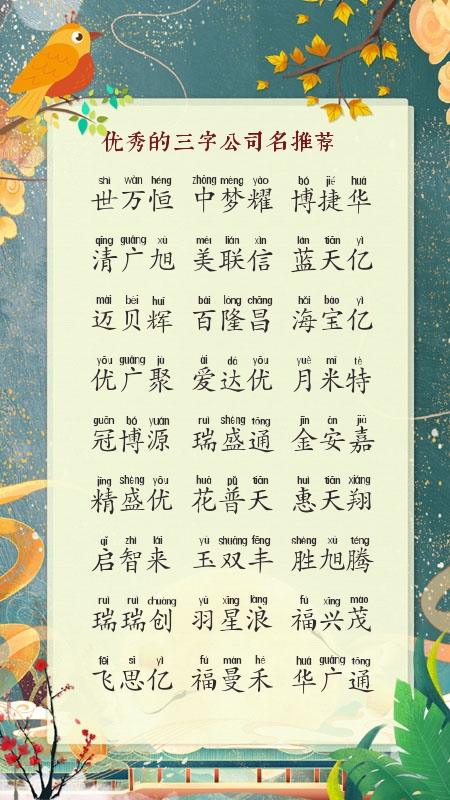 优秀的三字公司名推荐
shì wàn héng zhōng mèng yào bó jié huá
世万恒 中梦耀 博捷华
qīng guǎng xù měi lián xìn lán tiān yì
清广旭 美联信 蓝天亿
mài bèi huī bǎi lóng chāng hǎi bǎo yì
迈贝辉 百隆昌 海宝亿
yōu guǎng jù ài dá yōu yuè mǐ tè
优广聚 爱达优 月米特
guān bó yuán ruì shèng tōng jīn ān jiā
冠博源 瑞盛通 金安嘉
jīng shèng yōu huā pǔ tiān huì tiān xiáng
精盛优 花普天 惠天翔
qǐ zhì lái yù shuāng fēng shèng xù téng
启智来 玉双丰 胜旭腾
ruì ruì chuàng yǔ xīng làng fú xīng mào
瑞瑞创 羽星浪 福兴茂
fēi sī yì fú màn hé huá guǎng tōng
飞思亿 福曼禾 华广通